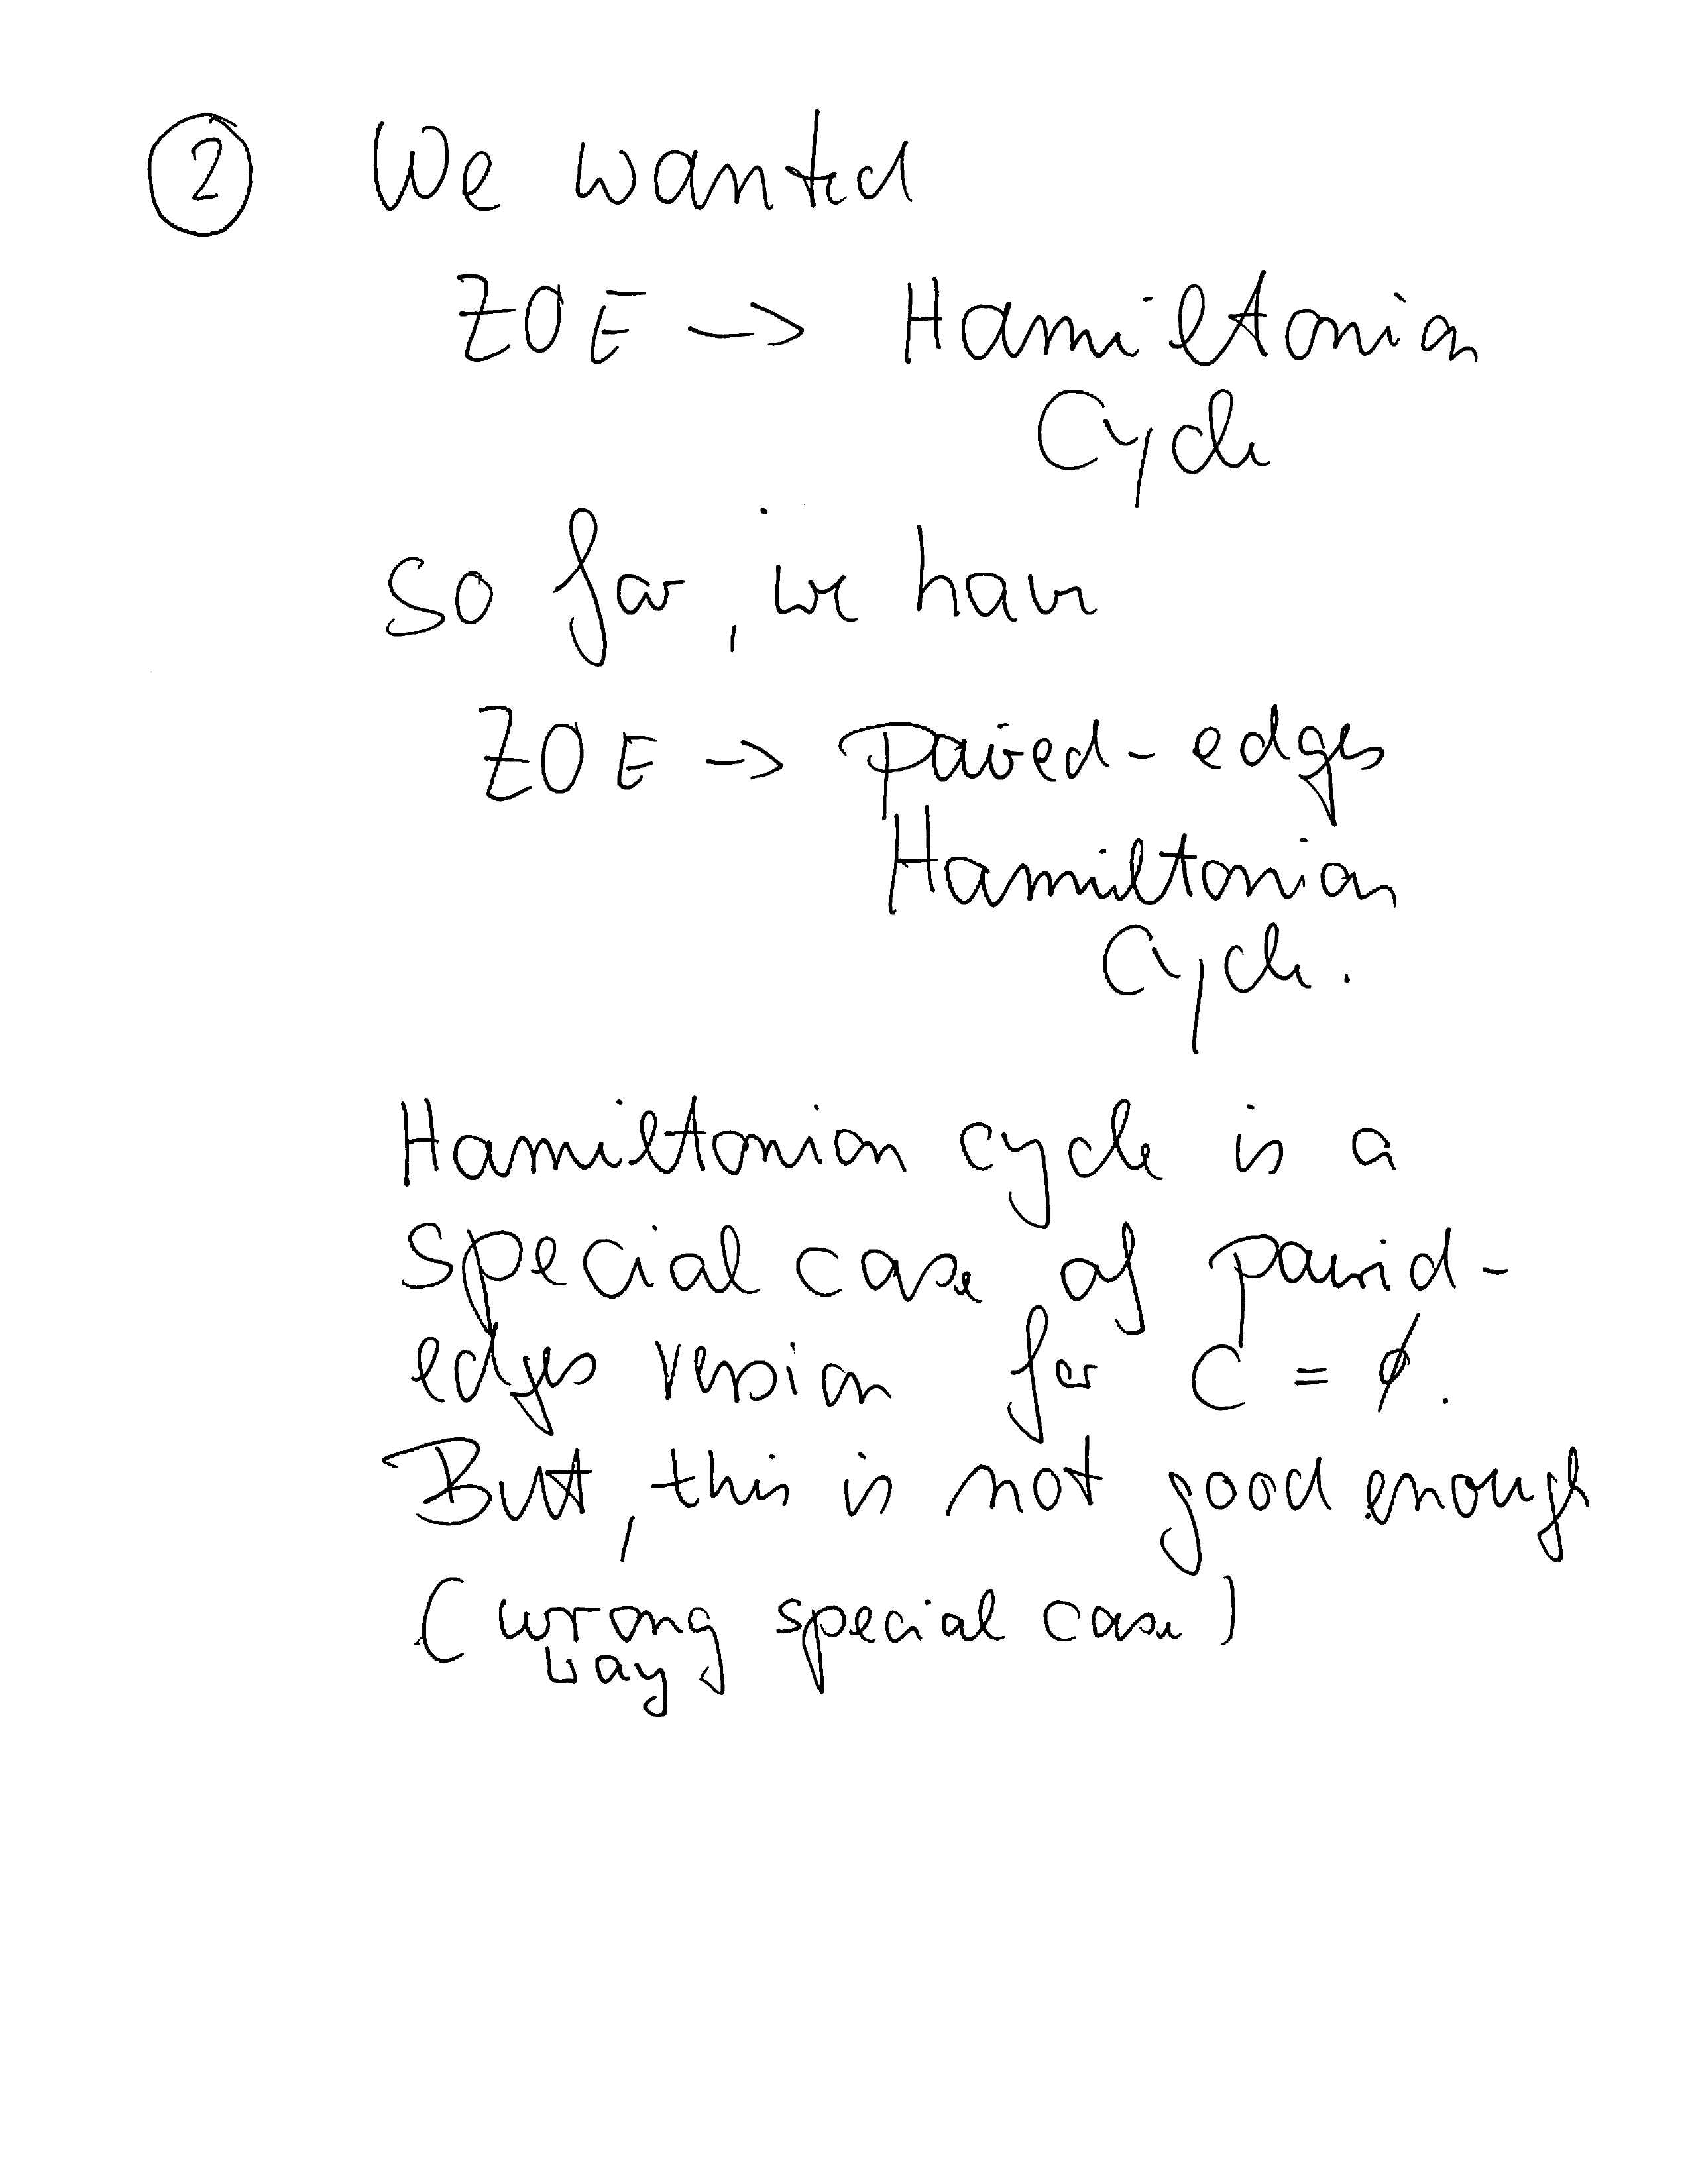 ② We wanted
ZOE -> Hamiltonian
Cycle
so far, we have
ZOE -> Paired-edges
Hamiltonian
Cycle.
Hamiltonian cycle is a
special case of paired-
edges version for C = ∅.
But, this is not good enough
(wrong special case)
way